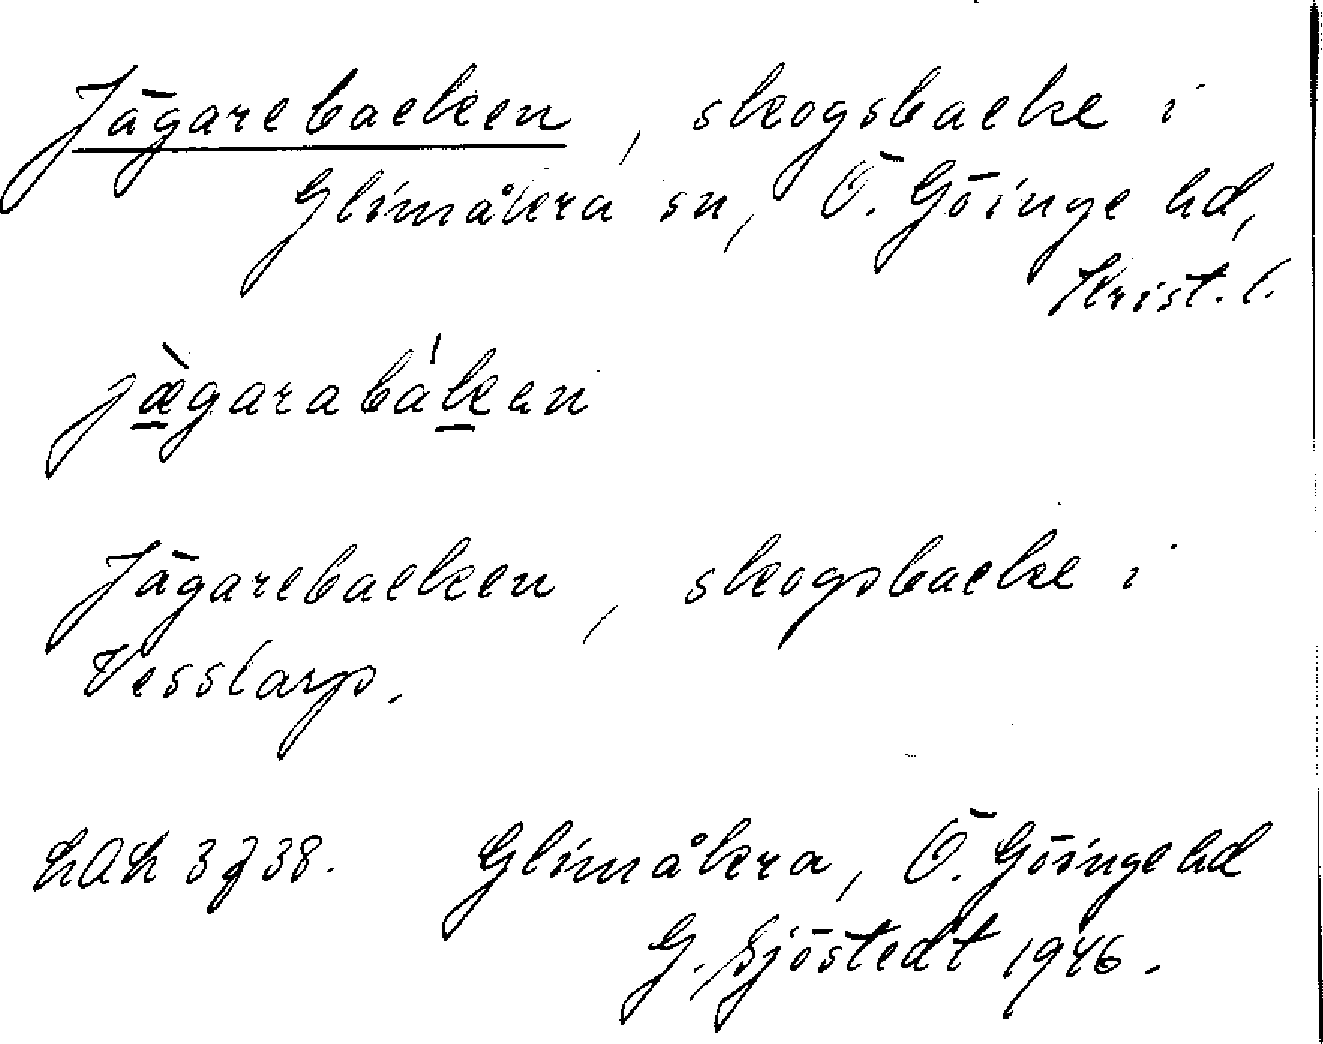 Jägarebacken, skogsbacke i
Glimåkra sn, Ö. Göinge hd,
Krist. l.
jæ̀garabákan
Jägarebacken, skogsbacke i
Vesslarp.
LAL 3738. Glimåkra, Ö. Göinge hd
G. Sjöstedt 1946.